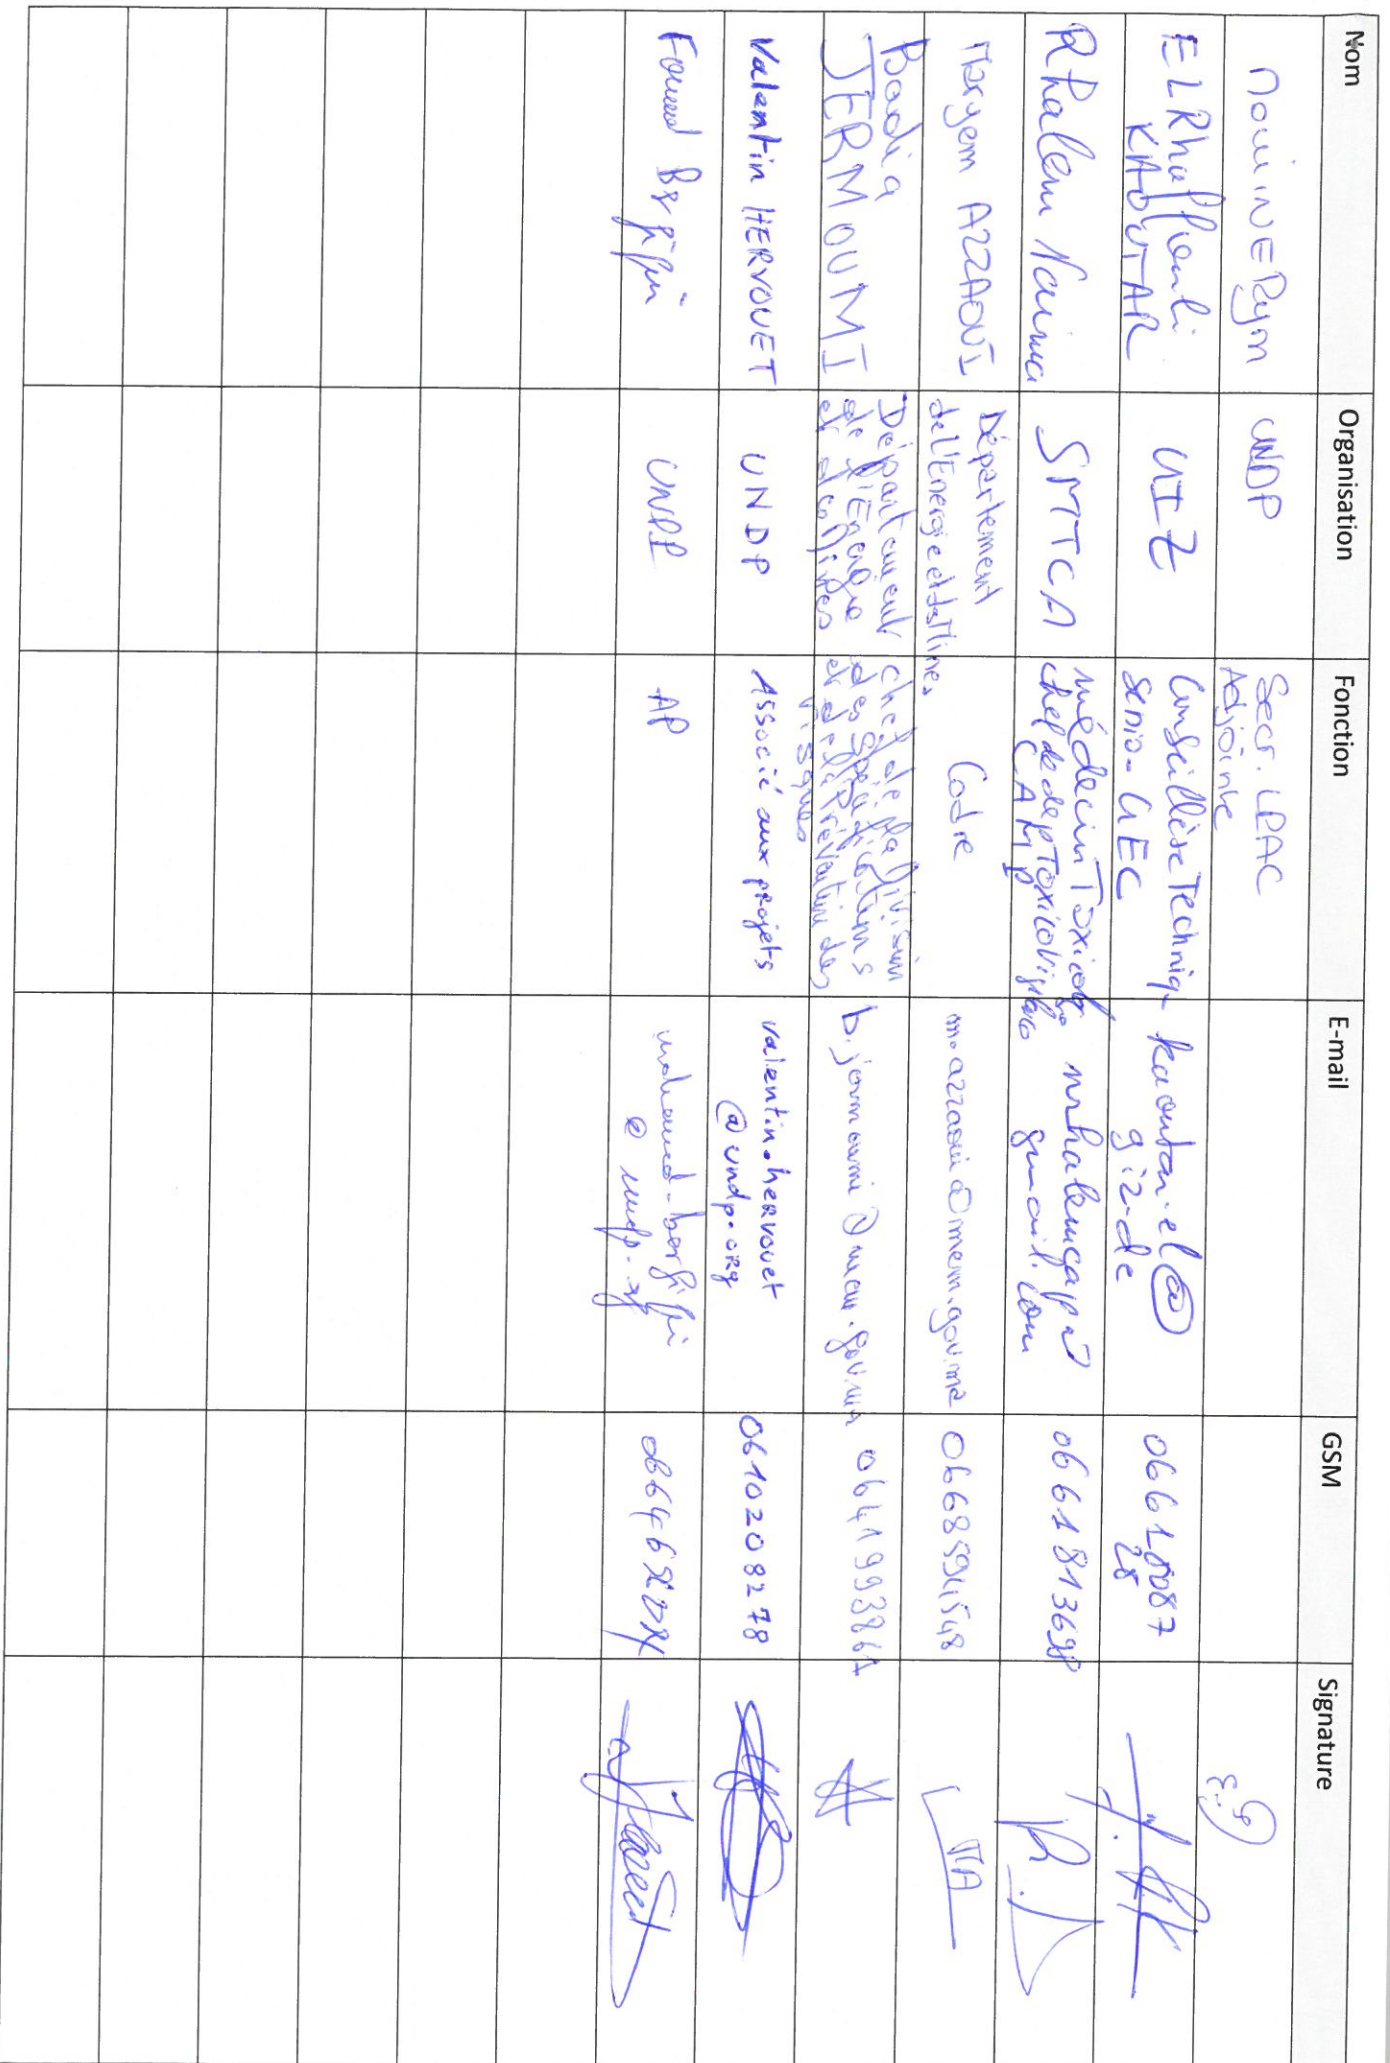 Nom Organisation Fonction E-mail GSM Signature
MouiNE Rym UNDP Secr. LPAC
Adjointe
EL Rhaffouli
KAOUTAR
GIZ
Conseillère Techniq
GEC
kaoutar.el@
giz.de
06610087
28
Rhalem Naima SMTCA
médecin Toxicologue
chef de dept Toxicovigilance
CAMP
nrhalemcap@
gmail.com
0661813698
Meryem AZZAOUI
Département
de l'Energie et des Mines
Cadre
m.azzaoui@mem.gov.ma
0668594548
Badia
JERMOUMI
Département
de l'Energie
et des Mines
chef de la Division
des Spécifications
et de la Prévention des
risques
b.jermoumi@mem.gov.ma
0641993861
Valentin HERVOUET
UNDP
Associé aux projets
valentin.hervouet
@undp.org
0610208278
UNDP
AP